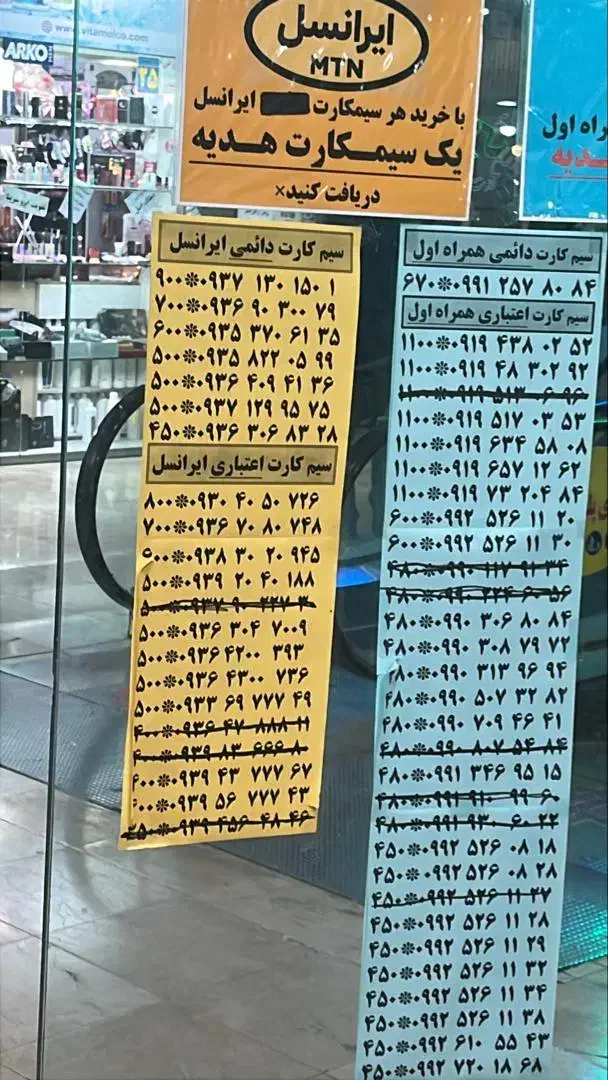 www.vitamolco.com
ARKO
۲۵
ایرانسل
MTN
با خرید هر سیمکارت ایرانسل
یک سیمـکارت هـدیه
دریافت کنید×
راه اول
سیم کارت دائمی ایرانسل
۹۰۰*۰۹۳۷ ۱۳۰ ۱۵۰ ۱
۷۰۰*۰۹۳۶ ۹۰ ۳۰۰ ۷۹
۶۰۰*۰۹۳۵ ۳۷۰ ۶۱ ۳۵
۵۰۰*۰۹۳۵ ۸۲۲ ۰۵ ۹۹
۵۰۰*۰۹۳۶ ۴۰۹ ۴۱ ۳۶
۵۰۰*۰۹۳۷ ۱۲۹ ۹۵ ۷۵
۴۵۰*۰۹۳۶ ۳۰۶ ۸۳ ۲۸
سیم کارت اعتباری ایرانسل
۸۰۰*۰۹۳۰ ۴۰ ۵۰ ۷۲۶
۷۰۰*۰۹۳۶ ۷۰ ۸۰ ۷۴۸
۶۰۰*۰۹۳۸ ۳۰ ۲۰ ۹۴۵
۵۰۰*۰۹۳۹ ۲۰ ۴۰ ۱۸۸
۵۰۰*۰۹۳۶ ۳۰۴ ۷۰۰۹
۵۰۰*۰۹۳۶ ۴۲۰۰ ۳۹۳
۵۰۰*۰۹۳۶ ۴۳۰۰ ۷۳۶
۵۰۰*۰۹۳۳ ۶۹ ۷۷۷ ۴۹
۴۰۰*۰۹۳۶ ۴۷ ۸۸۸ ۱۱
۴۰۰*۰۹۳۹ ۸۳ ۶۶۶ ۸۰
۴۰۰*۰۹۳۹ ۴۳ ۷۷۷ ۶۷
۴۰۰*۰۹۳۹ ۵۶ ۷۷۷ ۴۳
۳۵۰۰*۰۹۳۹ ۴۵۶ ۴۸ ۴۶
سیم کارت دائمی همراه اول
۶۷۰*۰۹۹۱ ۲۵۷ ۸۰ ۸۴
سیم کارت اعتباری همراه اول
۱۱۰۰*۰۹۱۹ ۴۳۸ ۰۲ ۵۲
۱۱۰۰*۰۹۱۹ ۴۸ ۳۰۲ ۹۲
۱۱۰۰*۰۹۱۹ ۵۱۳ ۰۶ ۹۶
۱۱۰۰*۰۹۱۹ ۵۱۷ ۰۳ ۵۳
۱۱۰۰*۰۹۱۹ ۶۳۴ ۵۸ ۰۸
۱۱۰۰*۰۹۱۹ ۶۵۷ ۱۲ ۶۲
۱۱۰۰*۰۹۱۹ ۷۳ ۲۰۴ ۸۴
۶۰۰*۰۹۹۲ ۵۲۶ ۱۱ ۲۰
۶۰۰*۰۹۹۲ ۵۲۶ ۱۱ ۳۰
۴۸۰*۰۹۹۰ ۱۱۷ ۹۱ ۳۴
۴۸۰*۰۹۹۰ ۳۰۶ ۸۰ ۸۴
۴۸۰*۰۹۹۰ ۳۰۸ ۷۹ ۷۲
۴۸۰*۰۹۹۰ ۳۱۳ ۹۶ ۹۴
۴۸۰*۰۹۹۰ ۵۰۷ ۳۲ ۸۲
۴۸۰*۰۹۹۰ ۷۰۹ ۴۶ ۴۱
۴۸۰*۰۹۹۰ ۸۰۷ ۵۴ ۸۴
۴۸۰*۰۹۹۱ ۳۴۶ ۹۵ ۱۵
۴۸۰*۰۹۹۱ ۹۱۰ ۹۹ ۶۰
۴۸۰*۰۹۹۱ ۹۳۰ ۶۰ ۲۲
۴۵۰*۰۹۹۲ ۵۲۶ ۰۸ ۱۸
۴۵۰*۰۹۹۲ ۵۲۶ ۰۸ ۲۸
۴۵۰*۰۹۹۲ ۵۲۶ ۱۱ ۲۷
۴۵۰*۰۹۹۲ ۵۲۶ ۱۱ ۲۸
۴۵۰*۰۹۹۲ ۵۲۶ ۱۱ ۲۹
۴۵۰*۰۹۹۲ ۵۲۶ ۱۱ ۳۲
۴۵۰*۰۹۹۲ ۵۲۶ ۱۱ ۳۴
۴۵۰*۰۹۹۲ ۵۲۶ ۱۱ ۳۸
۴۵۰*۰۹۹۲ ۶۱۰ ۵۵ ۴۳
۴۵۰*۰۹۹۲ ۷۲۰ ۱۸ ۶۸